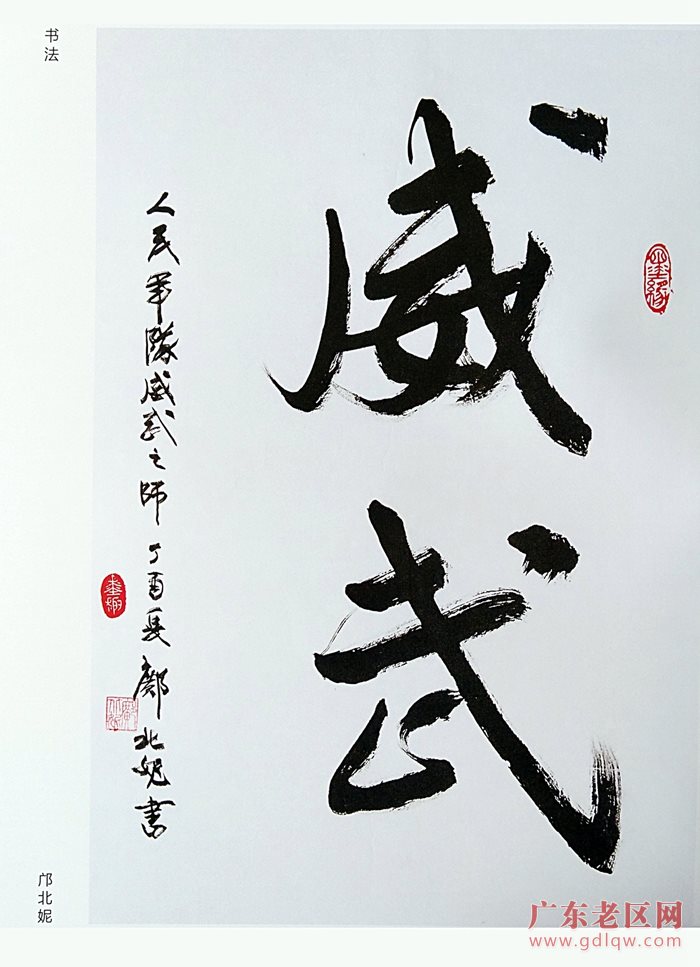 书法
墨緣
威武
人民軍隊威武之師丁酉夏鄺北妮書
邝北妮
广东老区网
www.gdlqw.com